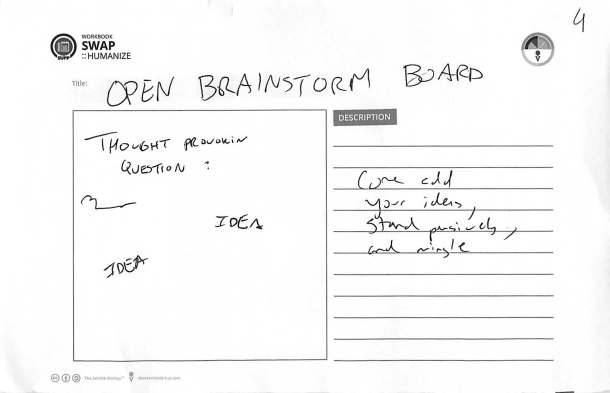 4
WORKBOOK
SWAP
:: HUMANIZE
Title: OPEN BRAINSTORM BOARD
THOUGHT PROVOKIN
QUESTION :
IDEA
IDEA
DESCRIPTION
Come add
your ideas,
Stand passively,
and mingle